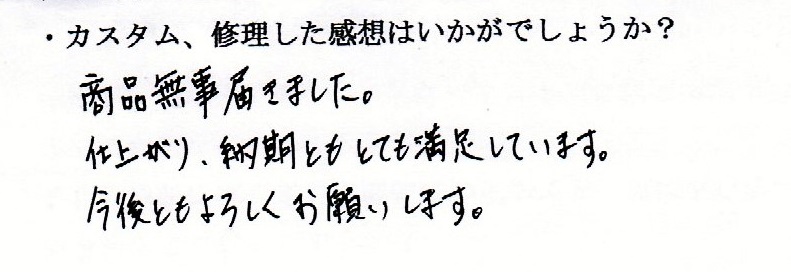 ・カスタム、修理した感想はいかがでしょうか？
商品無事届きました。
仕上がり、納期ともとても満足しています。
今後ともよろしくお願いします。